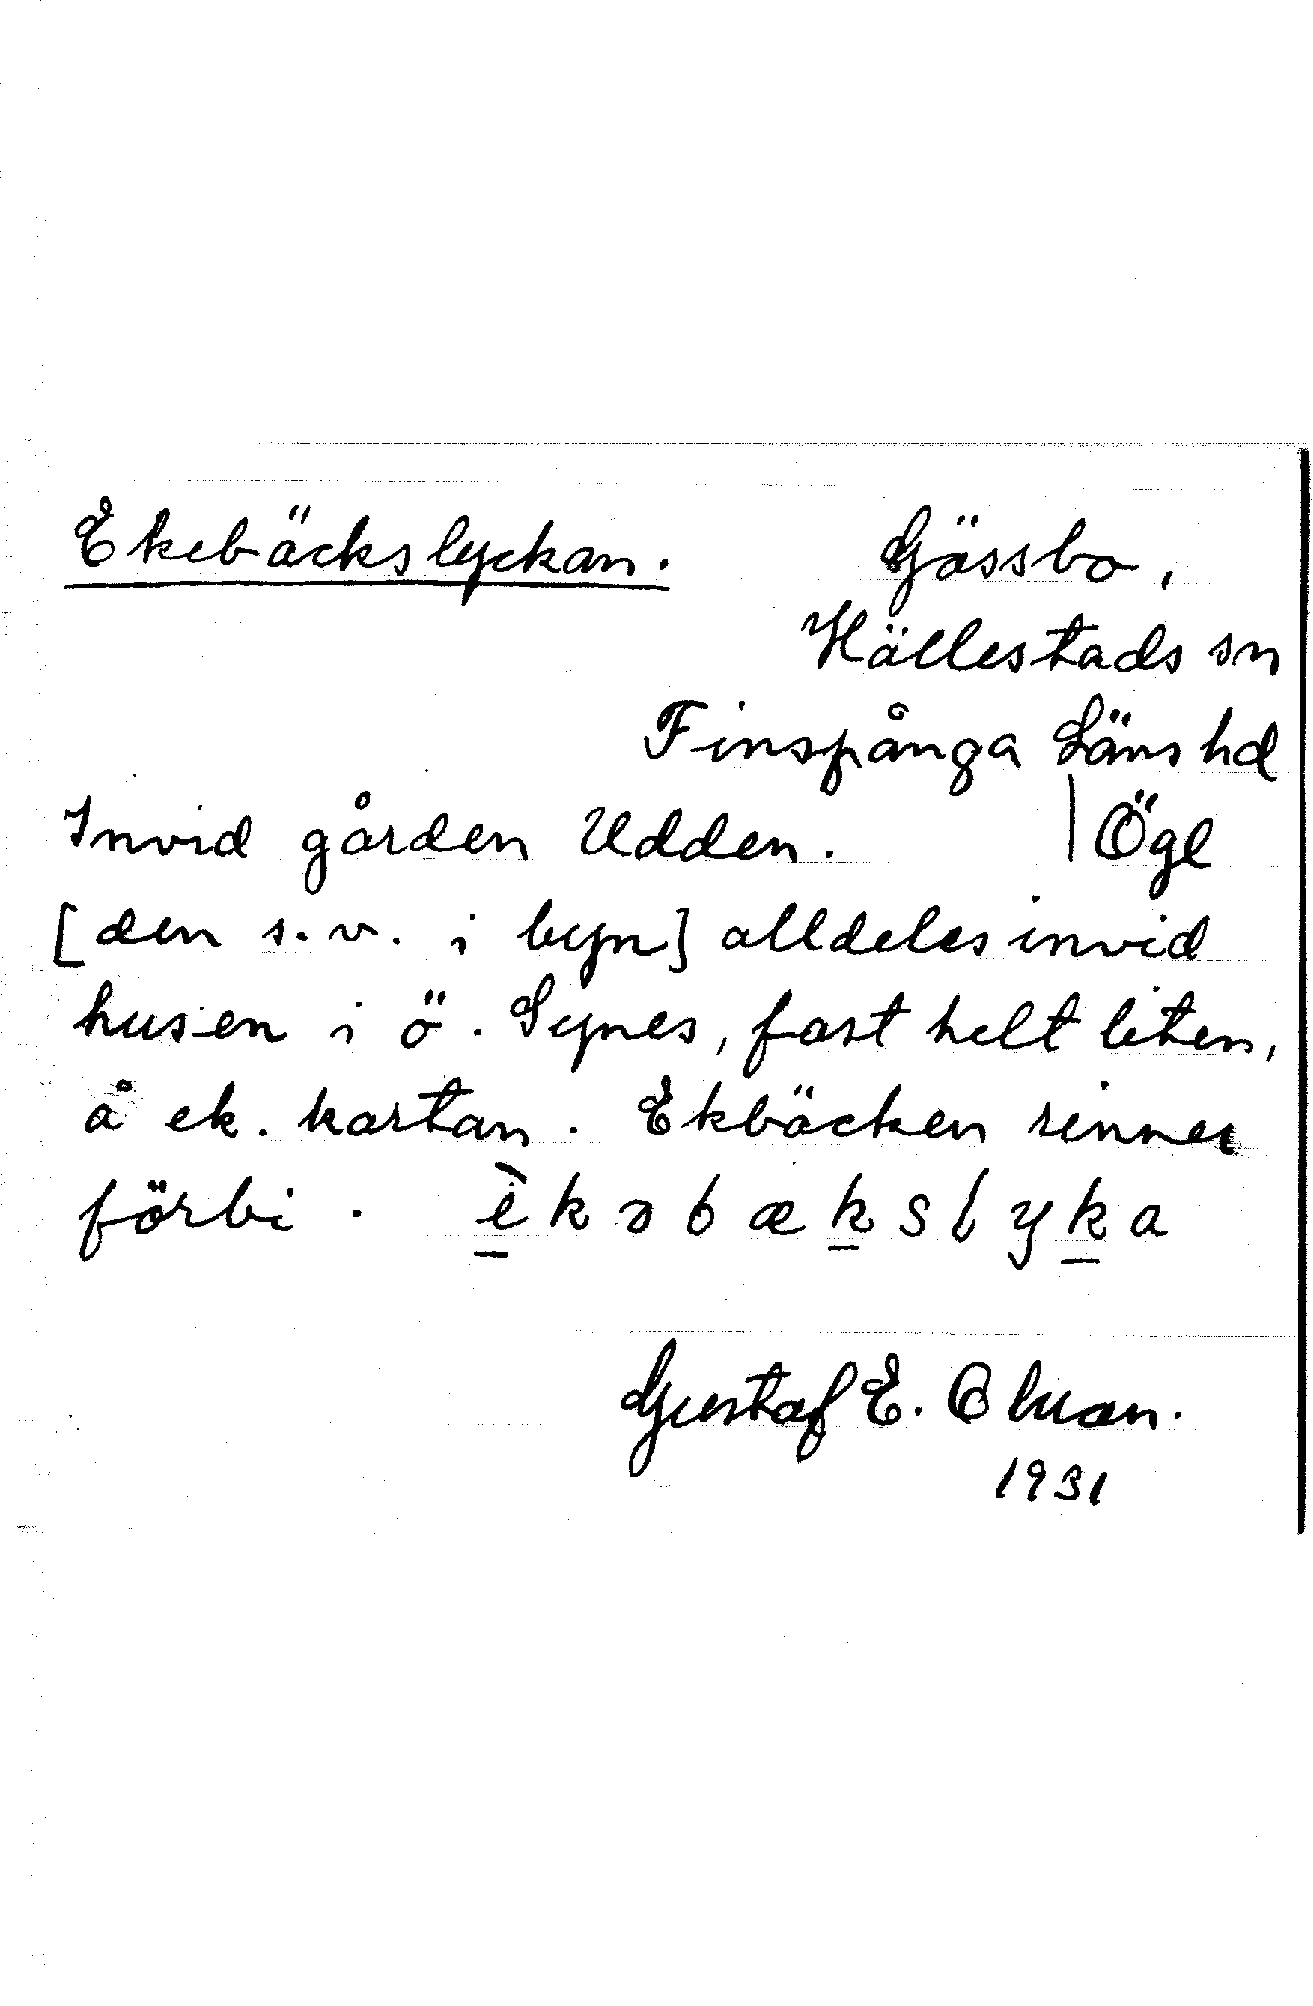 Ekebäckslyckan. Gässbo,
Hällestads sn
Finspånga Läns hd
Invid gården Udden. | Ögl
[den s.v. i byn] alldeles invid
husen i ö. Synes, fast helt liten,
å ek. kartan. Ekbäcken rinner
förbi. èkəbækslyka
Gustaf E. Olman.
1931